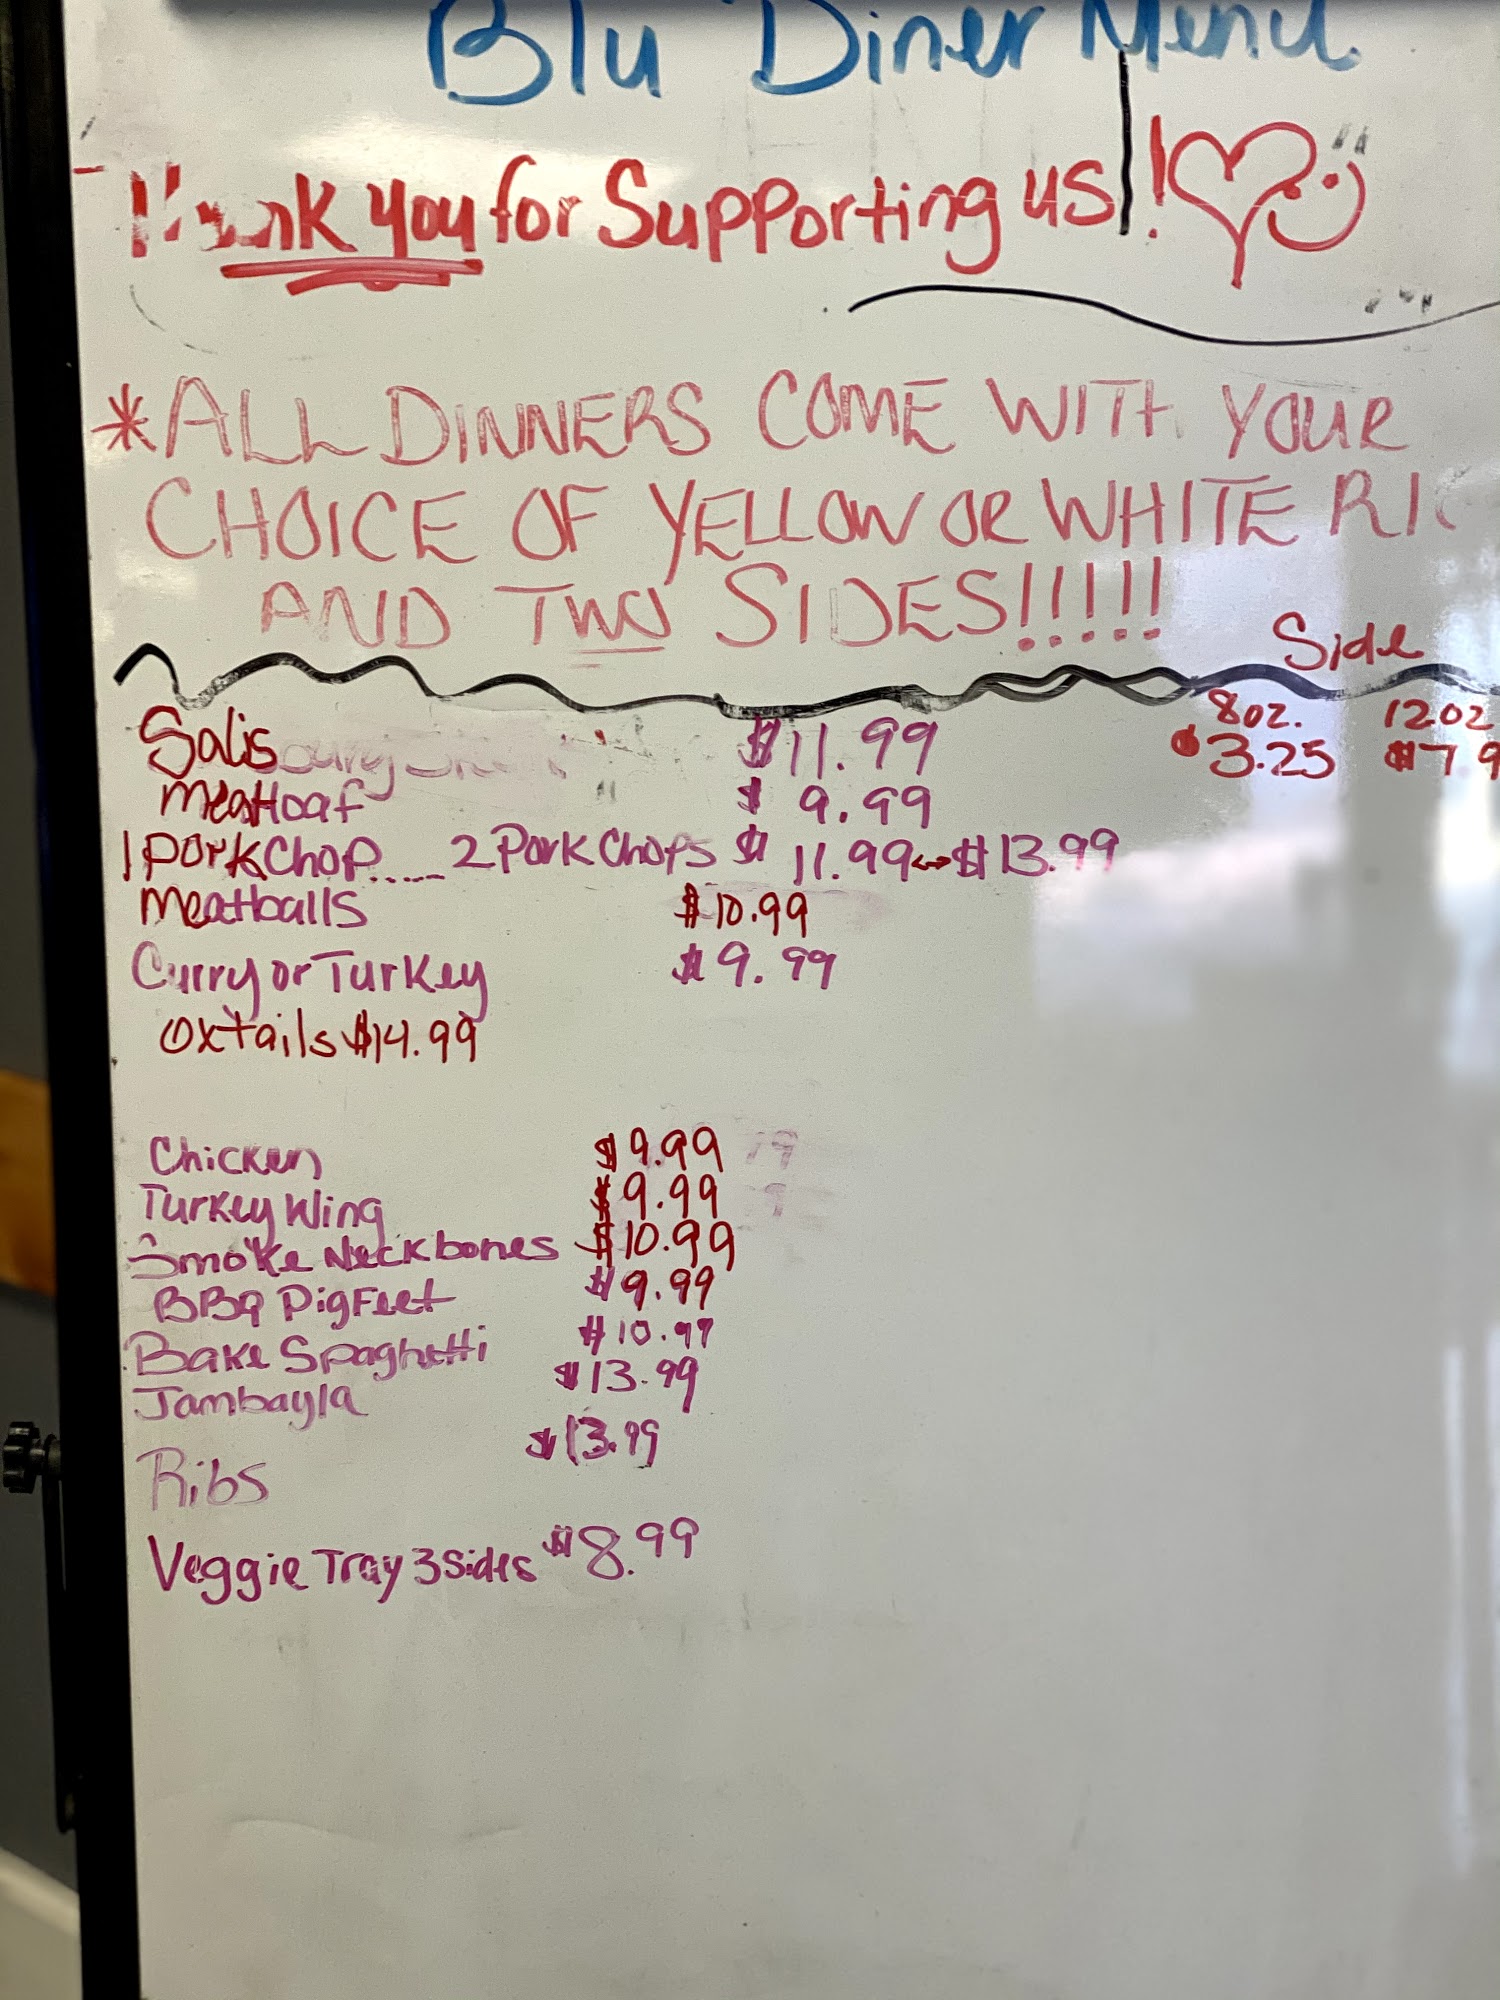 Blu Diner Menu
Thank you for Supporting us!
*ALL DINNERS COME WITH YOUR
CHOICE OF YELLOW OR WHITE RIC
AND TWO SIDES!!!!!
Side
8oz. 12oz
$3.25 $7.9
Salisbury $11.99
Meatloaf $9.99
1 Pork Chop..... 2 Pork Chops $11.99↔$13.99
Meatballs $10.99
Curry or Turkey $9.99
Oxtails $14.99
Chicken $9.99
Turkey Wing $9.99
Smoke Neckbones $10.99
BBQ Pig Feet $9.99
Bake Spaghetti $10.99
Jambayla $13.99
Ribs $13.99
Veggie Tray 3 Sides $8.99